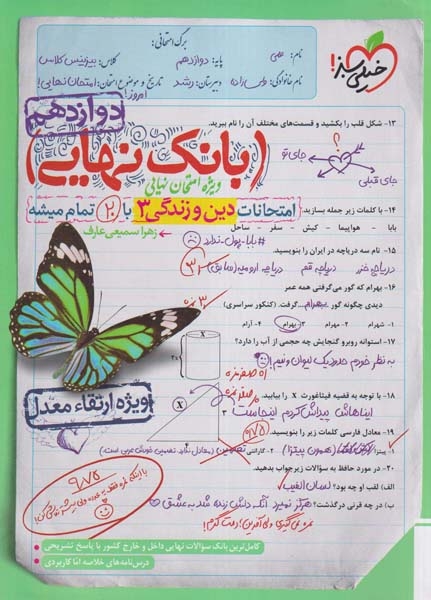 برگ امتحانی:
خیلی سبز!
نام: علی
پایه: دوازدهم
کلاس: بیزینس کلاس
نام خانوادگی:
دبیرستان: رشد
تاریخ و موضوع امتحان: امتحان نهایی!
امروز!
دوازدهم
۱۳- شکل قلب را بکشید و قسمت‌های مختلف آن را نام ببرید.
جای تو
؟
جای قبلی
(بانک نهایی)
ویژه امتحان نهایی
امتحانات دین و زندگی ۳ با ۲۰ تمام میشه
زهرا سمیعی عارف
۱۴- با کلمات زیر جمله بسازید.
بابا - هواپیما - کیش - سفر - ساحل
#بابا_پول_ندارد
۱۵- نام سه دریاچه در ایران را بنویسید.
دریاچه خزر دریاچه قم دریاچه ارومیه (سابق)
۱۶- بهرام که گور می‌گرفتی همه عمر
دیدی چگونه گور بهرام گرفت. (کنکور سراسری)
۱- شهرام ۲- مهرام ۳- بهرام ۴- آرام
۱۷- استوانه روبرو گنجایش چه حجمی از آب را دارد؟
به نظر خودم حدود یک لیوان و نیم!
۱۸- با توجه به قضیه فیثاغورث X را بیابید.
ایناهاش پیداش کردم اینجاست
X
۳
۴
ویژه ارتقاء معدل
۱۹- معادل فارسی کلمات زیر را بنویسید.
۱- پیتزا: (همون پیتزا) ۲- گارانتی: تضمین
۲۰- در مورد حافظ به سؤالات زیر جواب بدهید.
الف) لقب او چه بود؟ لسان الغیب
ب) در چه قرنی درگذشت؟ هرگز نمیرد آنکه دلش زنده شد به عشق
کامل‌ترین بانک سؤالات نهایی داخل و خارج کشور با پاسخ تشریحی
درس‌نامه‌های خلاصه امّا کاربردی